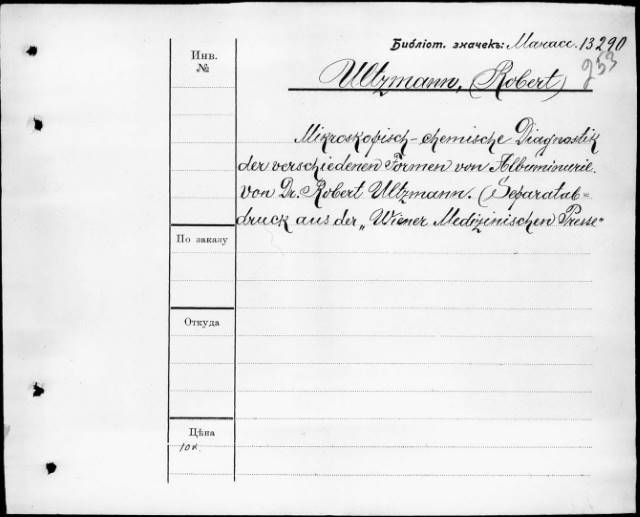 Библіот. значекъ: Манасс. 13290
253
Инв.
№
Ultzmann, (Robert)
Mikroskopisch-chemische Diagnostik
der verschiedenen Formen von Albuminurie.
von Dr. Robert Ultzmann. (Separatab=
druck aus der „Wiener Medizinischen Presse"
По заказу
Откуда
Цѣна
10 к.